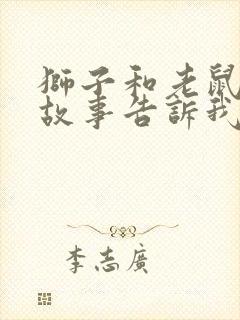 獅子和老鼠
故事告訴我
李志廣